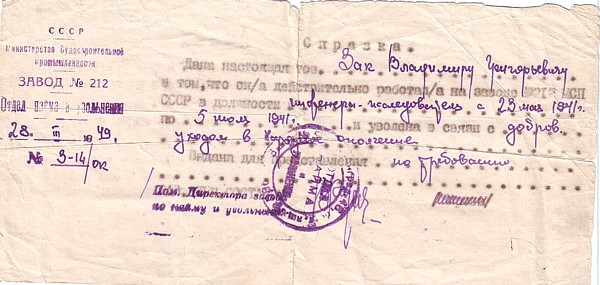 СССР
Министерство Судостроительной
промышленности
ЗАВОД № 212
Отдел найма и увольнения
28. III 1949.
№ 3-14/ок
Справка.
Дана настоящая тов. Зак Владимиру Григорьевичу
в том, что он/а действительно работал/а на заводе №212 МСП
СССР в должности с 23 мая 1941г.
по 5 июля 1941г. и уволена в связи с добров.
уходом в ополчение.
Выдана для представления по требованию
Пом. Директора завода
по найму и увольнению